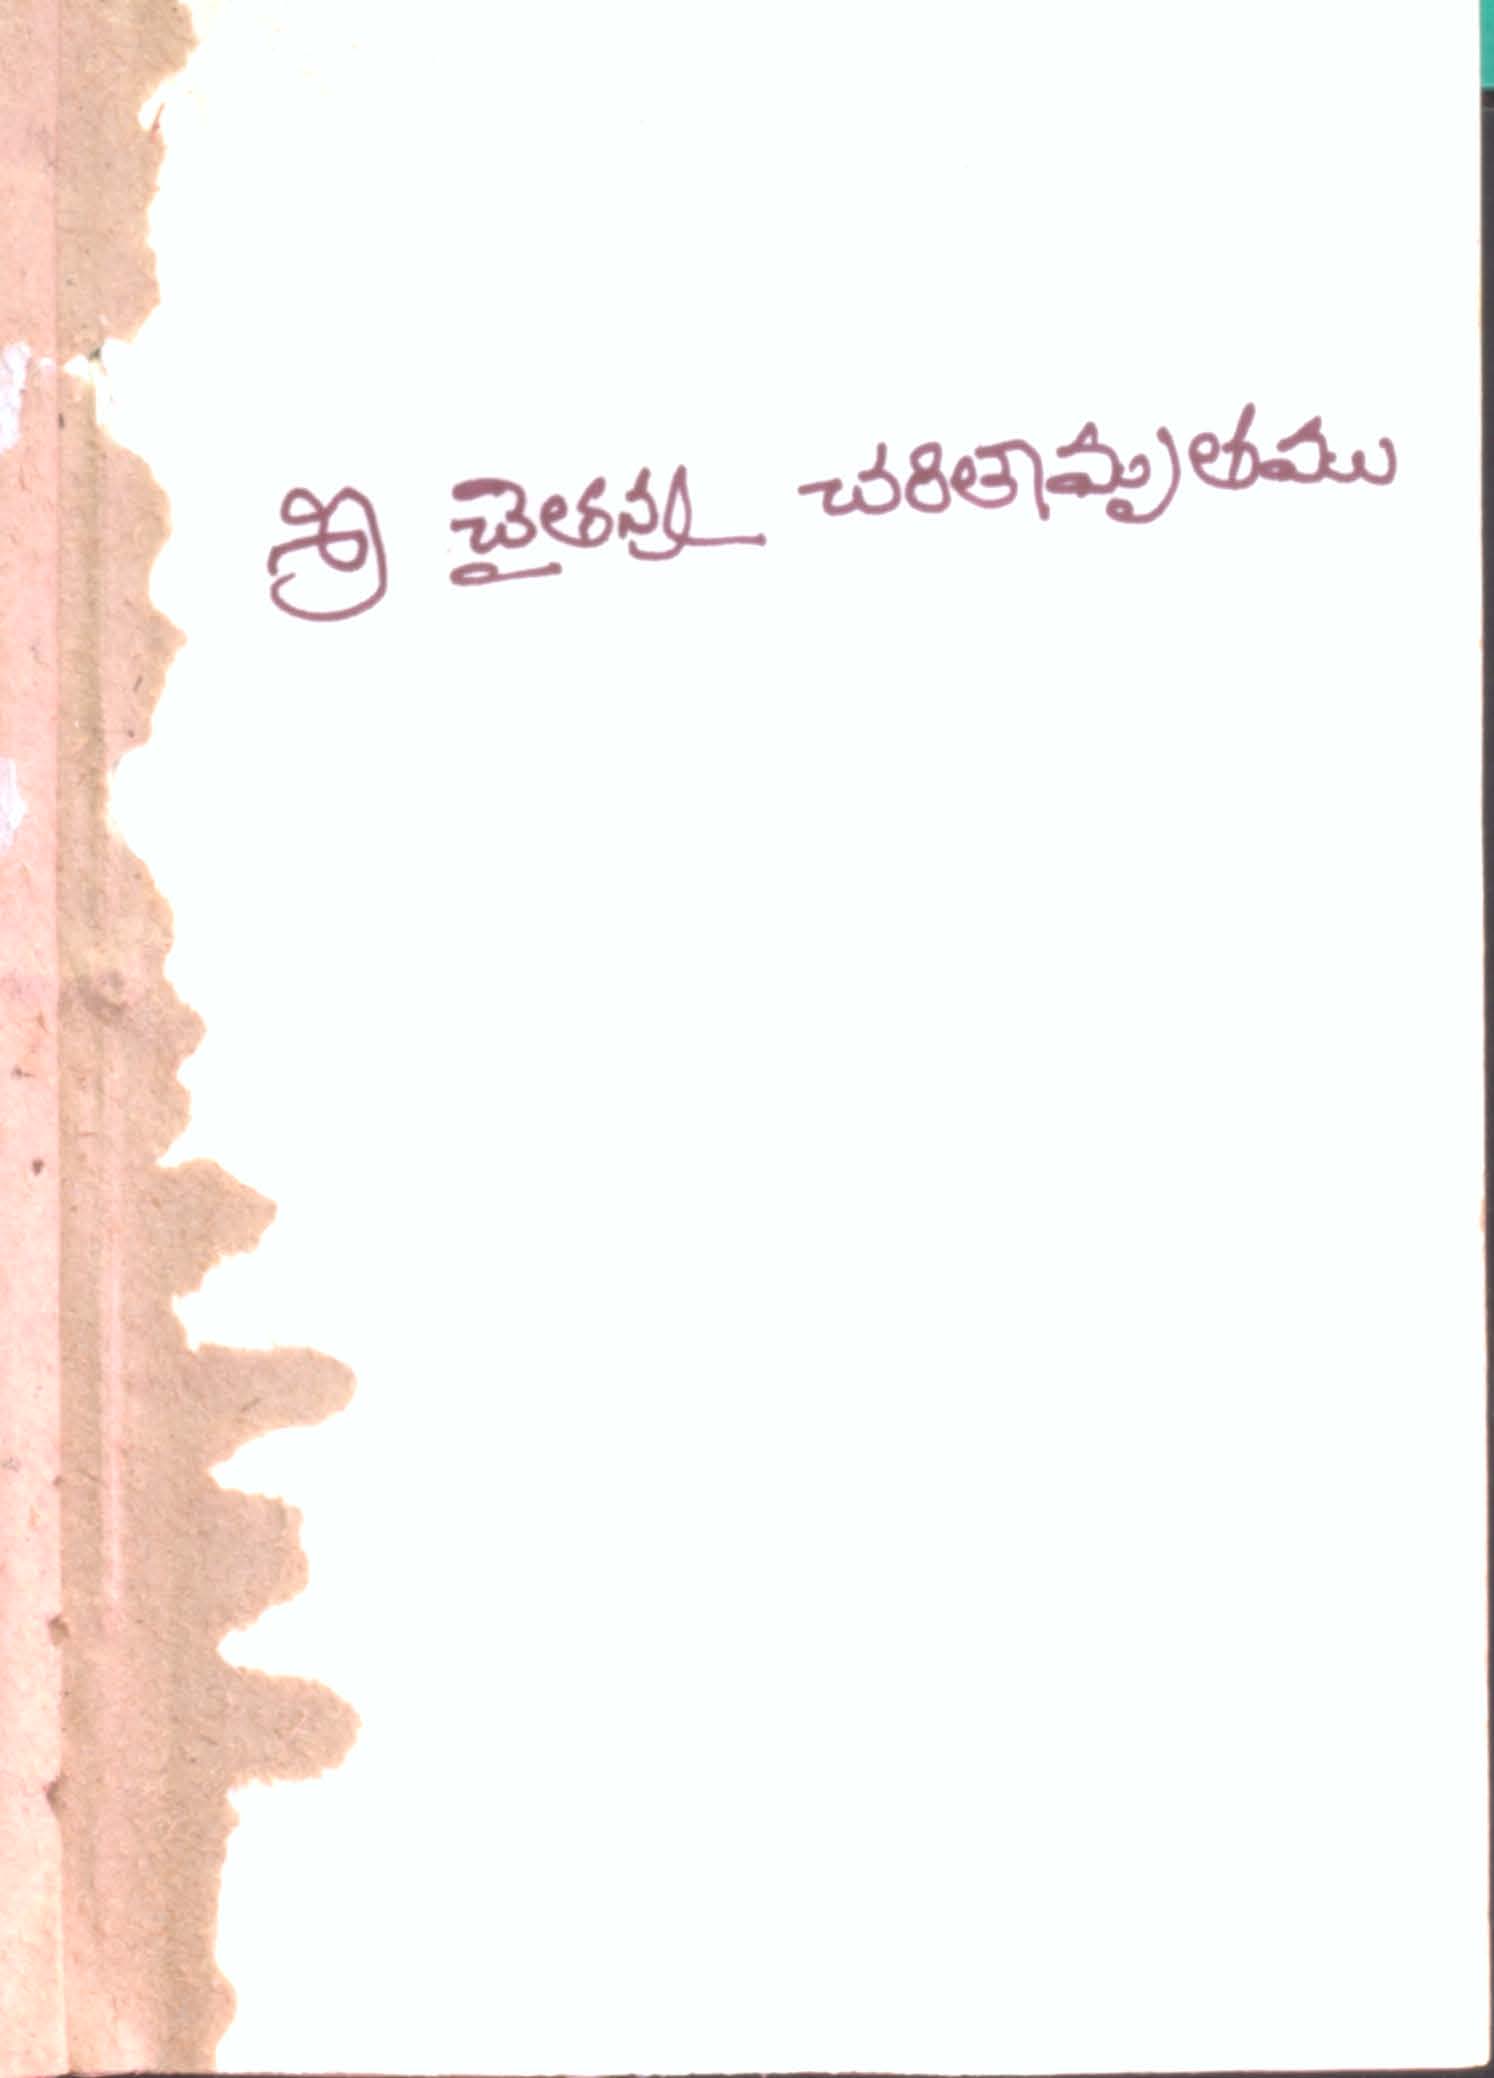 శ్రీ చైతన్య చరితామృతము